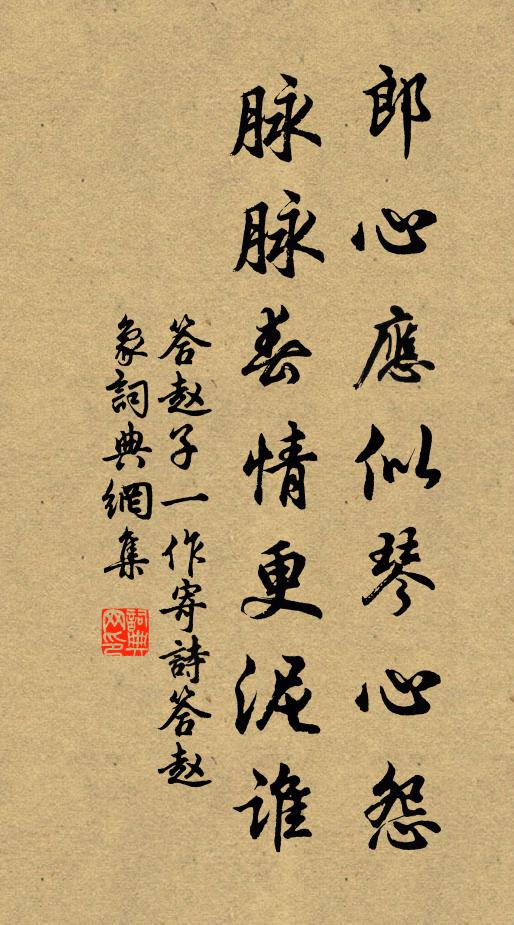 郎心應似琴心怨
脉脉春情更泥誰
答赵子一作寄詩答赵
象詞典網集
詞典网印